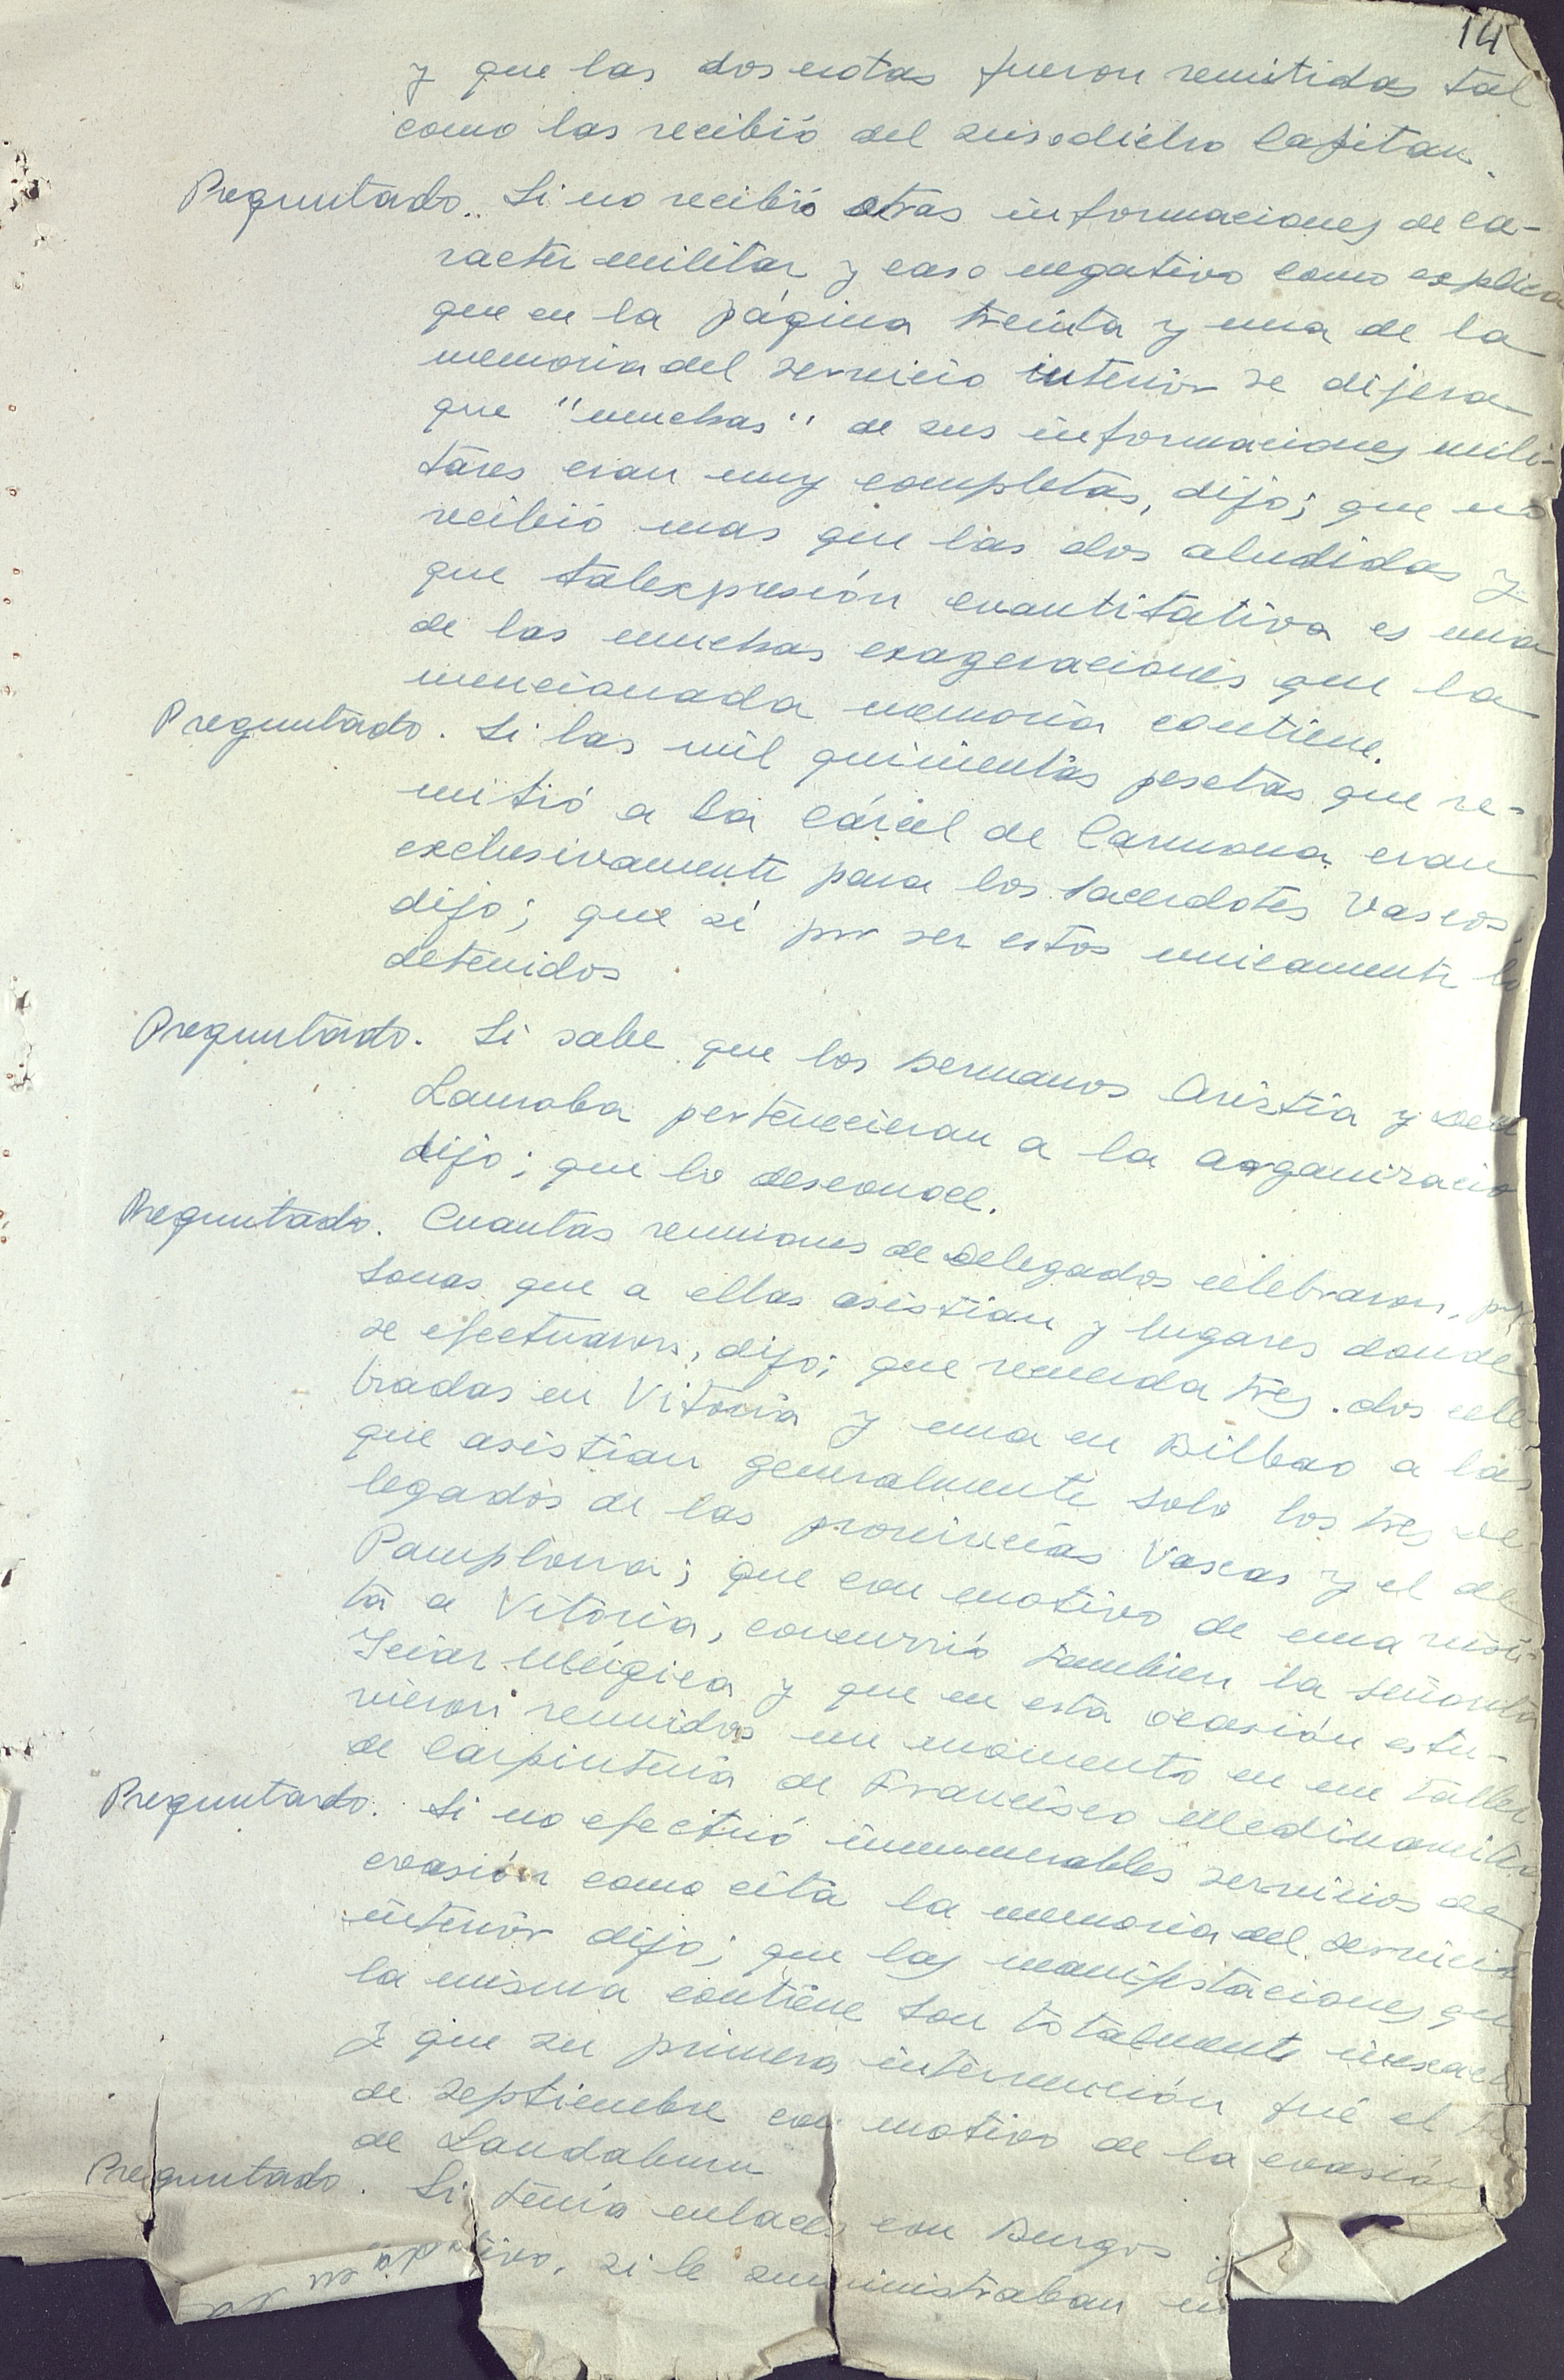 14
y que las dos notas fueron remitidas tal
como las recibió del susodicho Capitan.
Preguntado. Si no recibió otras informaciones de ca-
racter militar y caso negativo como explica
que en la página treinta y una de la
memoria del servicio interior se dijera
que "muchas" de sus informaciones mili-
tares eran muy completas, dijo; que no
recibió mas que las dos aludidas y
que tal expresión cuantitativa es una
de las muchas exageraciones que la
mencionada memoria contiene.
Preguntado. Si las mil quinientas pesetas que re-
mitió a la Cárcel de Carmona eran
exclusivamente para los sacerdotes Vascos,
dijo; que si por ser estos unicamente lo
detenidos
Preguntado. Si sabe que los hermanos Aristia y
Lamroba pertenecieran a la aorganizacio
dijo; que lo desconoce.
Preguntado. Cuantas reuniones de Delegados celebraron, per
sonas que a ellas asistian y lugares donde
se efectuaron, dijo; que recuerda tres. dos cele-
bradas en Vitoria y una en Bilbao a las
que asistian generalmente solo los tres de
legados de las provincias Vascas y el de
Pamplona; que con motivo de una visi-
ta a Vitoria, concurrió tambien la señorita
Iciar Múgica y que en esta ocasión estu-
vieron reunidos un momento en un taller
de Carpinteria de Francisco Medinaveitia
Preguntado. Si no efectuó innumerables servicios de
evasión como cita la memoria del servicio
interior dijo; que las manifestaciones que
la misma contiene son totalmente inexac
y que su primera intervención fué el
de septiembre con motivo de la evasión
de Landaburu
Preguntado. Si tenia enlaces con Burgos y
si le suministraban